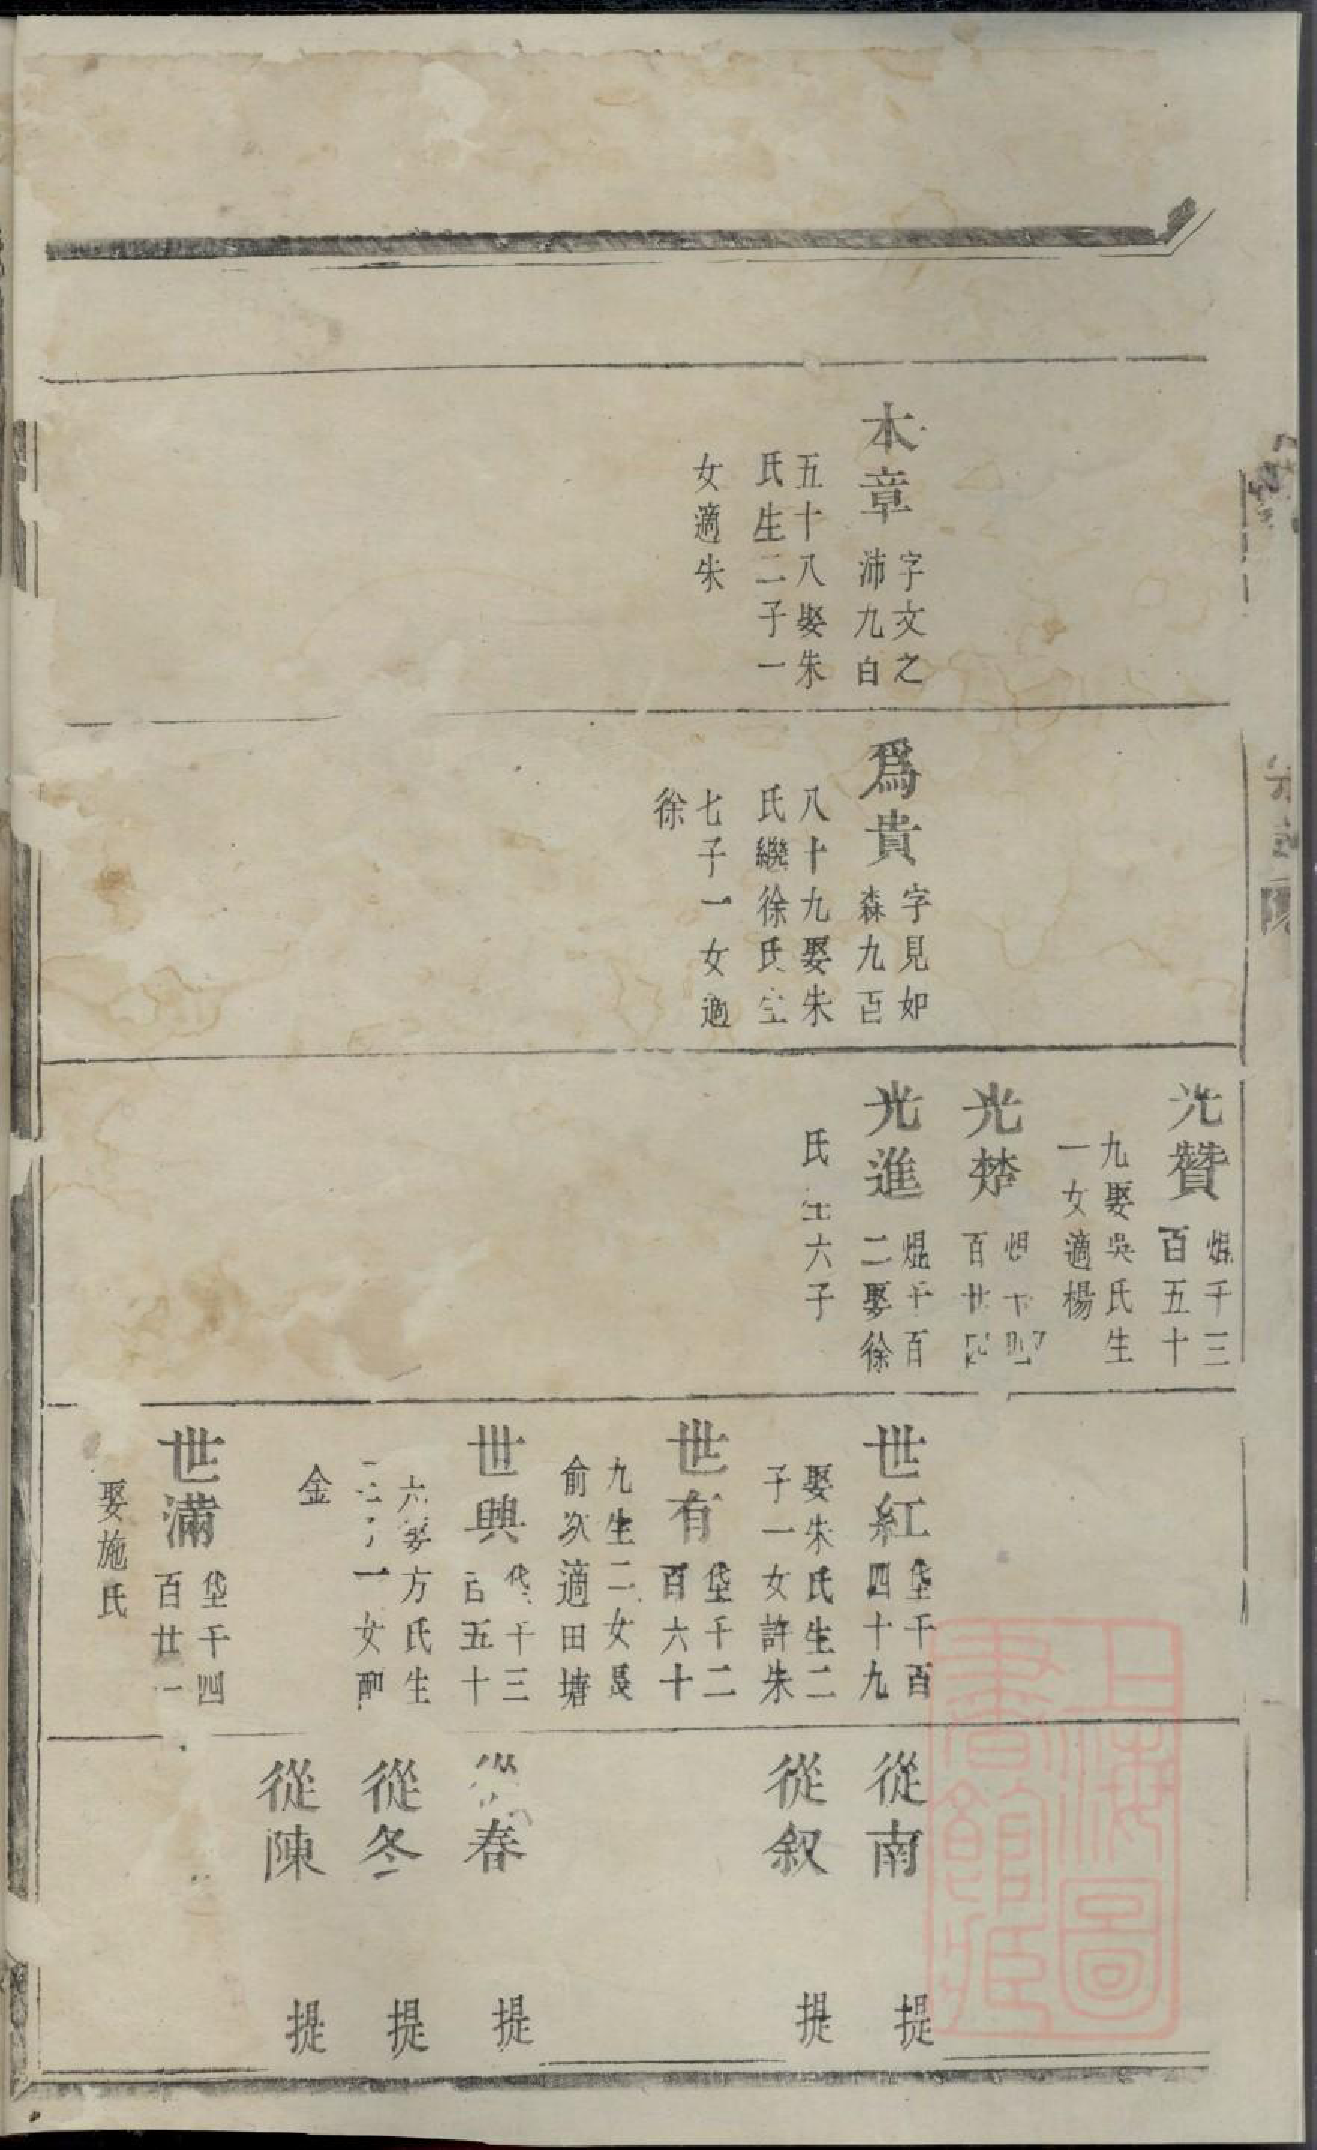 本章
字文之
沛九百
五十八娶朱
氏生二子一
女適朱
爲貴
字見如
森九百
八十九娶朱
氏繼徐氏生
七子一女適
徐
光贊
焜千三
百五十
九娶吳氏生
一女適楊
光楚
焜千
百廿四
光進
焜千百
二娶徐
氏生六子
世紅
垡千百
四十九
娶朱氏生二
子一女許朱
世有
垡千二
百六十
九生二女長
俞次適田塘
世興
垡千三
百五十
六娶方氏生
一女
金
世滿
垡千四
百廿一
娶施氏
從南
提
從叙
提
從春
提
從冬
提
從陳
提
上海圖
書館藏